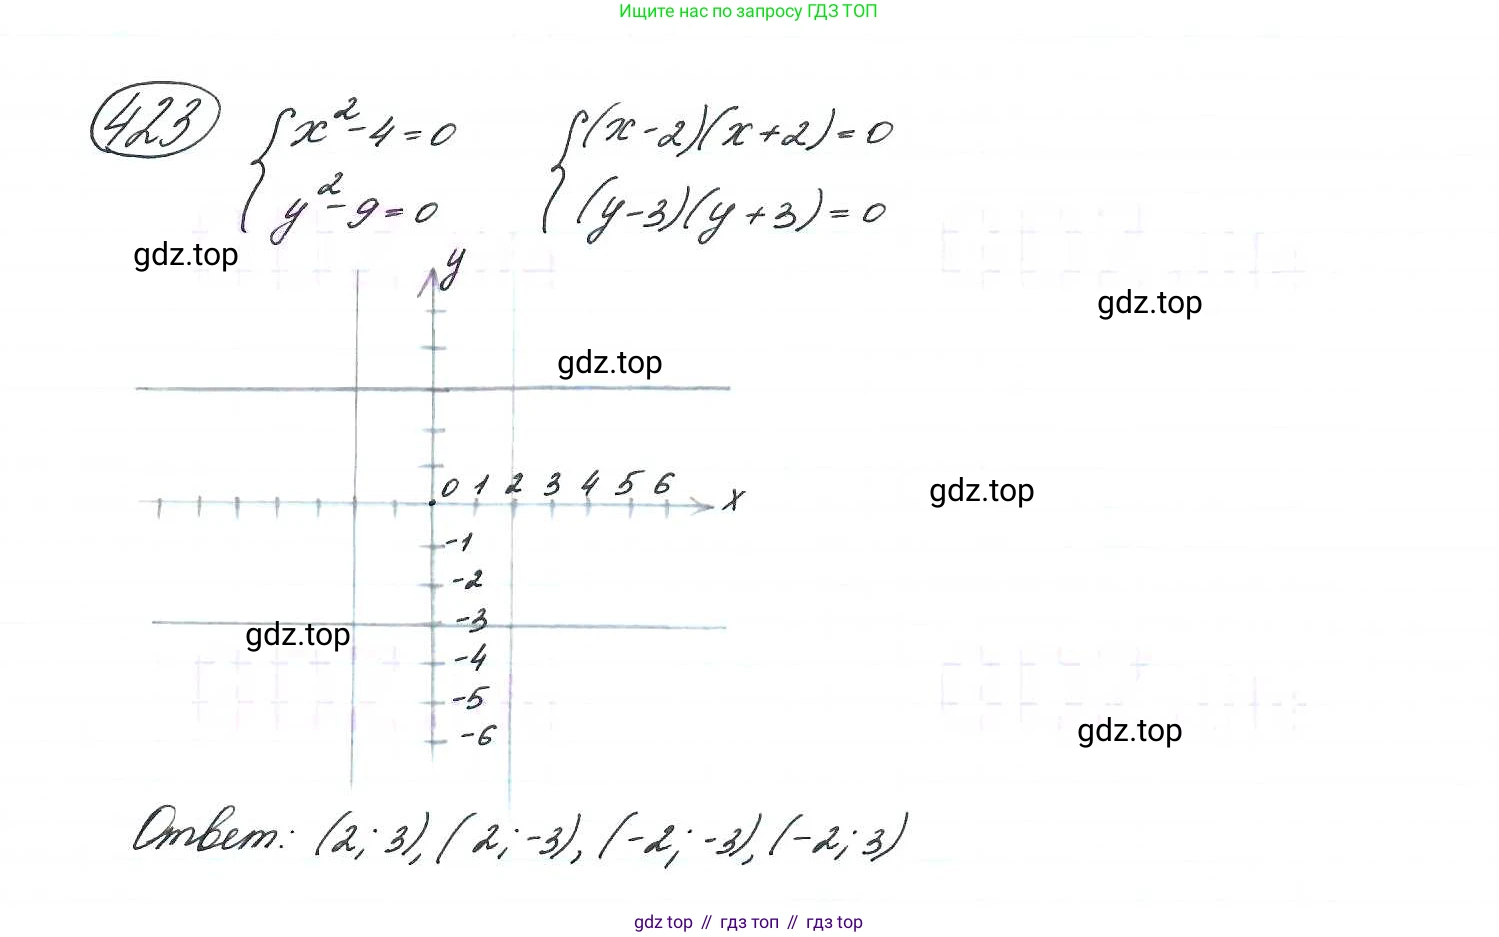 Ищите нас по запросу ГДЗ ТОП
423 x²-4=0 (x-2)(x+2)=0
y²-9=0 (y-3)(y+3)=0
gdz.top
y
gdz.top
gdz.top
0 1 2 3 4 5 6
x
gdz.top
-1
-2
-3
gdz.top
-4
-5
-6
gdz.top
Ответ: (2; 3), (2; -3), (-2; -3), (-2; 3)
gdz top // гдз топ // гдз top